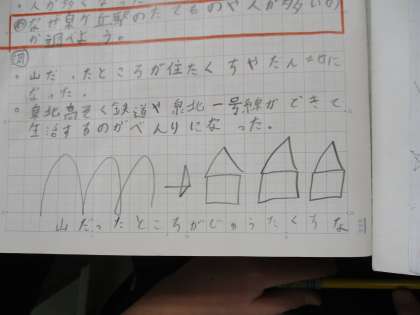 ・人が多くなった
なぜ泉ケ丘駅のたてものや人が多いか
調べよう。
・山だったところが住たくちやだん地に
なった。
・泉北高そく鉄道や泉北一号線ができて
生活するのがべんりになった。
山だったところがじゅうたくちな